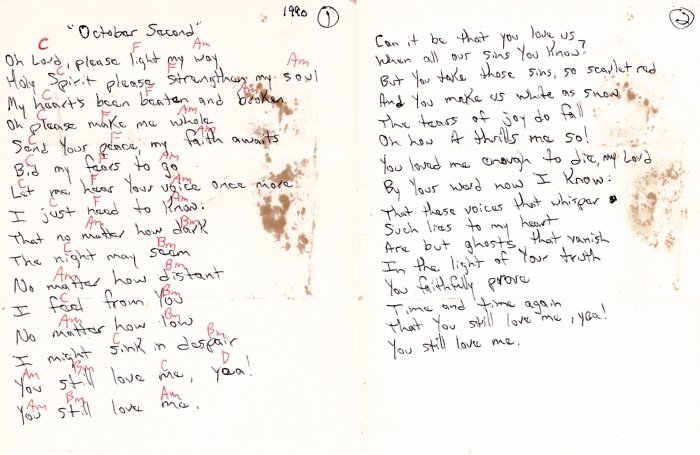 1990 1
"October Second"
C F Am
Oh Lord, please light my way
C F Am
Holy Spirit please strengthen my soul
C F Am
My heart's been beaten and broken
C F Am
Oh please make me whole
C F Am
Send Your peace, my faith awaits
C F Am
Bid my fears to go
C F Am
Let me hear Your voice once more
C F Am
I just need to know:
Am Bm
That no matter how dark
C Bm
The night may seem
Am Bm
No matter how distant
C Bm
I feel from You
Am Bm
No matter how low
C Bm
I might sink in despair
Am Bm C D
You still love me, yea!
Am Bm Am
You still love me.
2
Can it be that you love us,
When all our sins You know?
But You take those sins, so scarlet red
And You make us white as snow
The tears of joy do fall
Oh how it thrills me so!
You loved me enough to die, my Lord
By Your word now I know:
That these voices that whisper
Such lies to my heart
Are but ghosts that vanish
In the light of Your truth
You faithfully prove
Time and time again
That You still love me, yea!
You still love me.